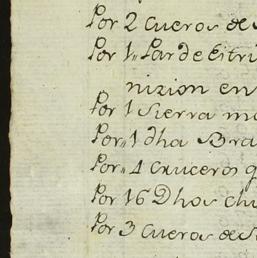 Por 2 Cueros de
Por 1,, Par de Estri
nizion en
Por 1 Sierra
Por,, 1 dha Bra
Por,, 4 Cruceros q
Por 16 Dhos ch
Por 3 Cueros de